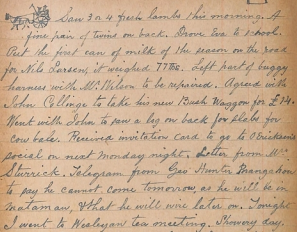 Saw 3 or 4 fresh lambs this morning. A
fine pair of twins on back. Drove Eva to school.
Put the first can of milk of the season on the road
for Nils Larsen, it weighed 77 lbs. Left part of buggy
harness with Mr. Nelson to be repaired. Agreed with
John to take his new Bush Waggon for £14.
Went with John to saw a log on back for slabs for
cow bale. Received invitation card to go to
social on next monday night. Letter from Mr.
Sturrock. Telegram from Geo Hunter
to say he cannot come tomorrow as he will be in
& that he will wire later on. Tonight
I went to Wesleyan tea meeting. Showery day.